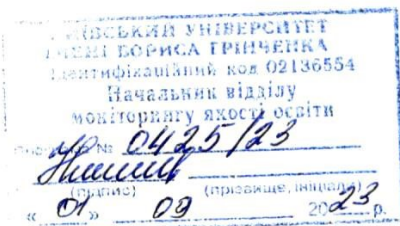 КИЇВСЬКИЙ УНІВЕРСИТЕТ
ІМЕНІ БОРИСА ГРІНЧЕНКА
Ідентифікаційний код 02136554
Начальник відділу
моніторингу якості освіти
№ 0425/23
(підпис) (прізвище, ініціали)
« 01 » 09 2023 р.